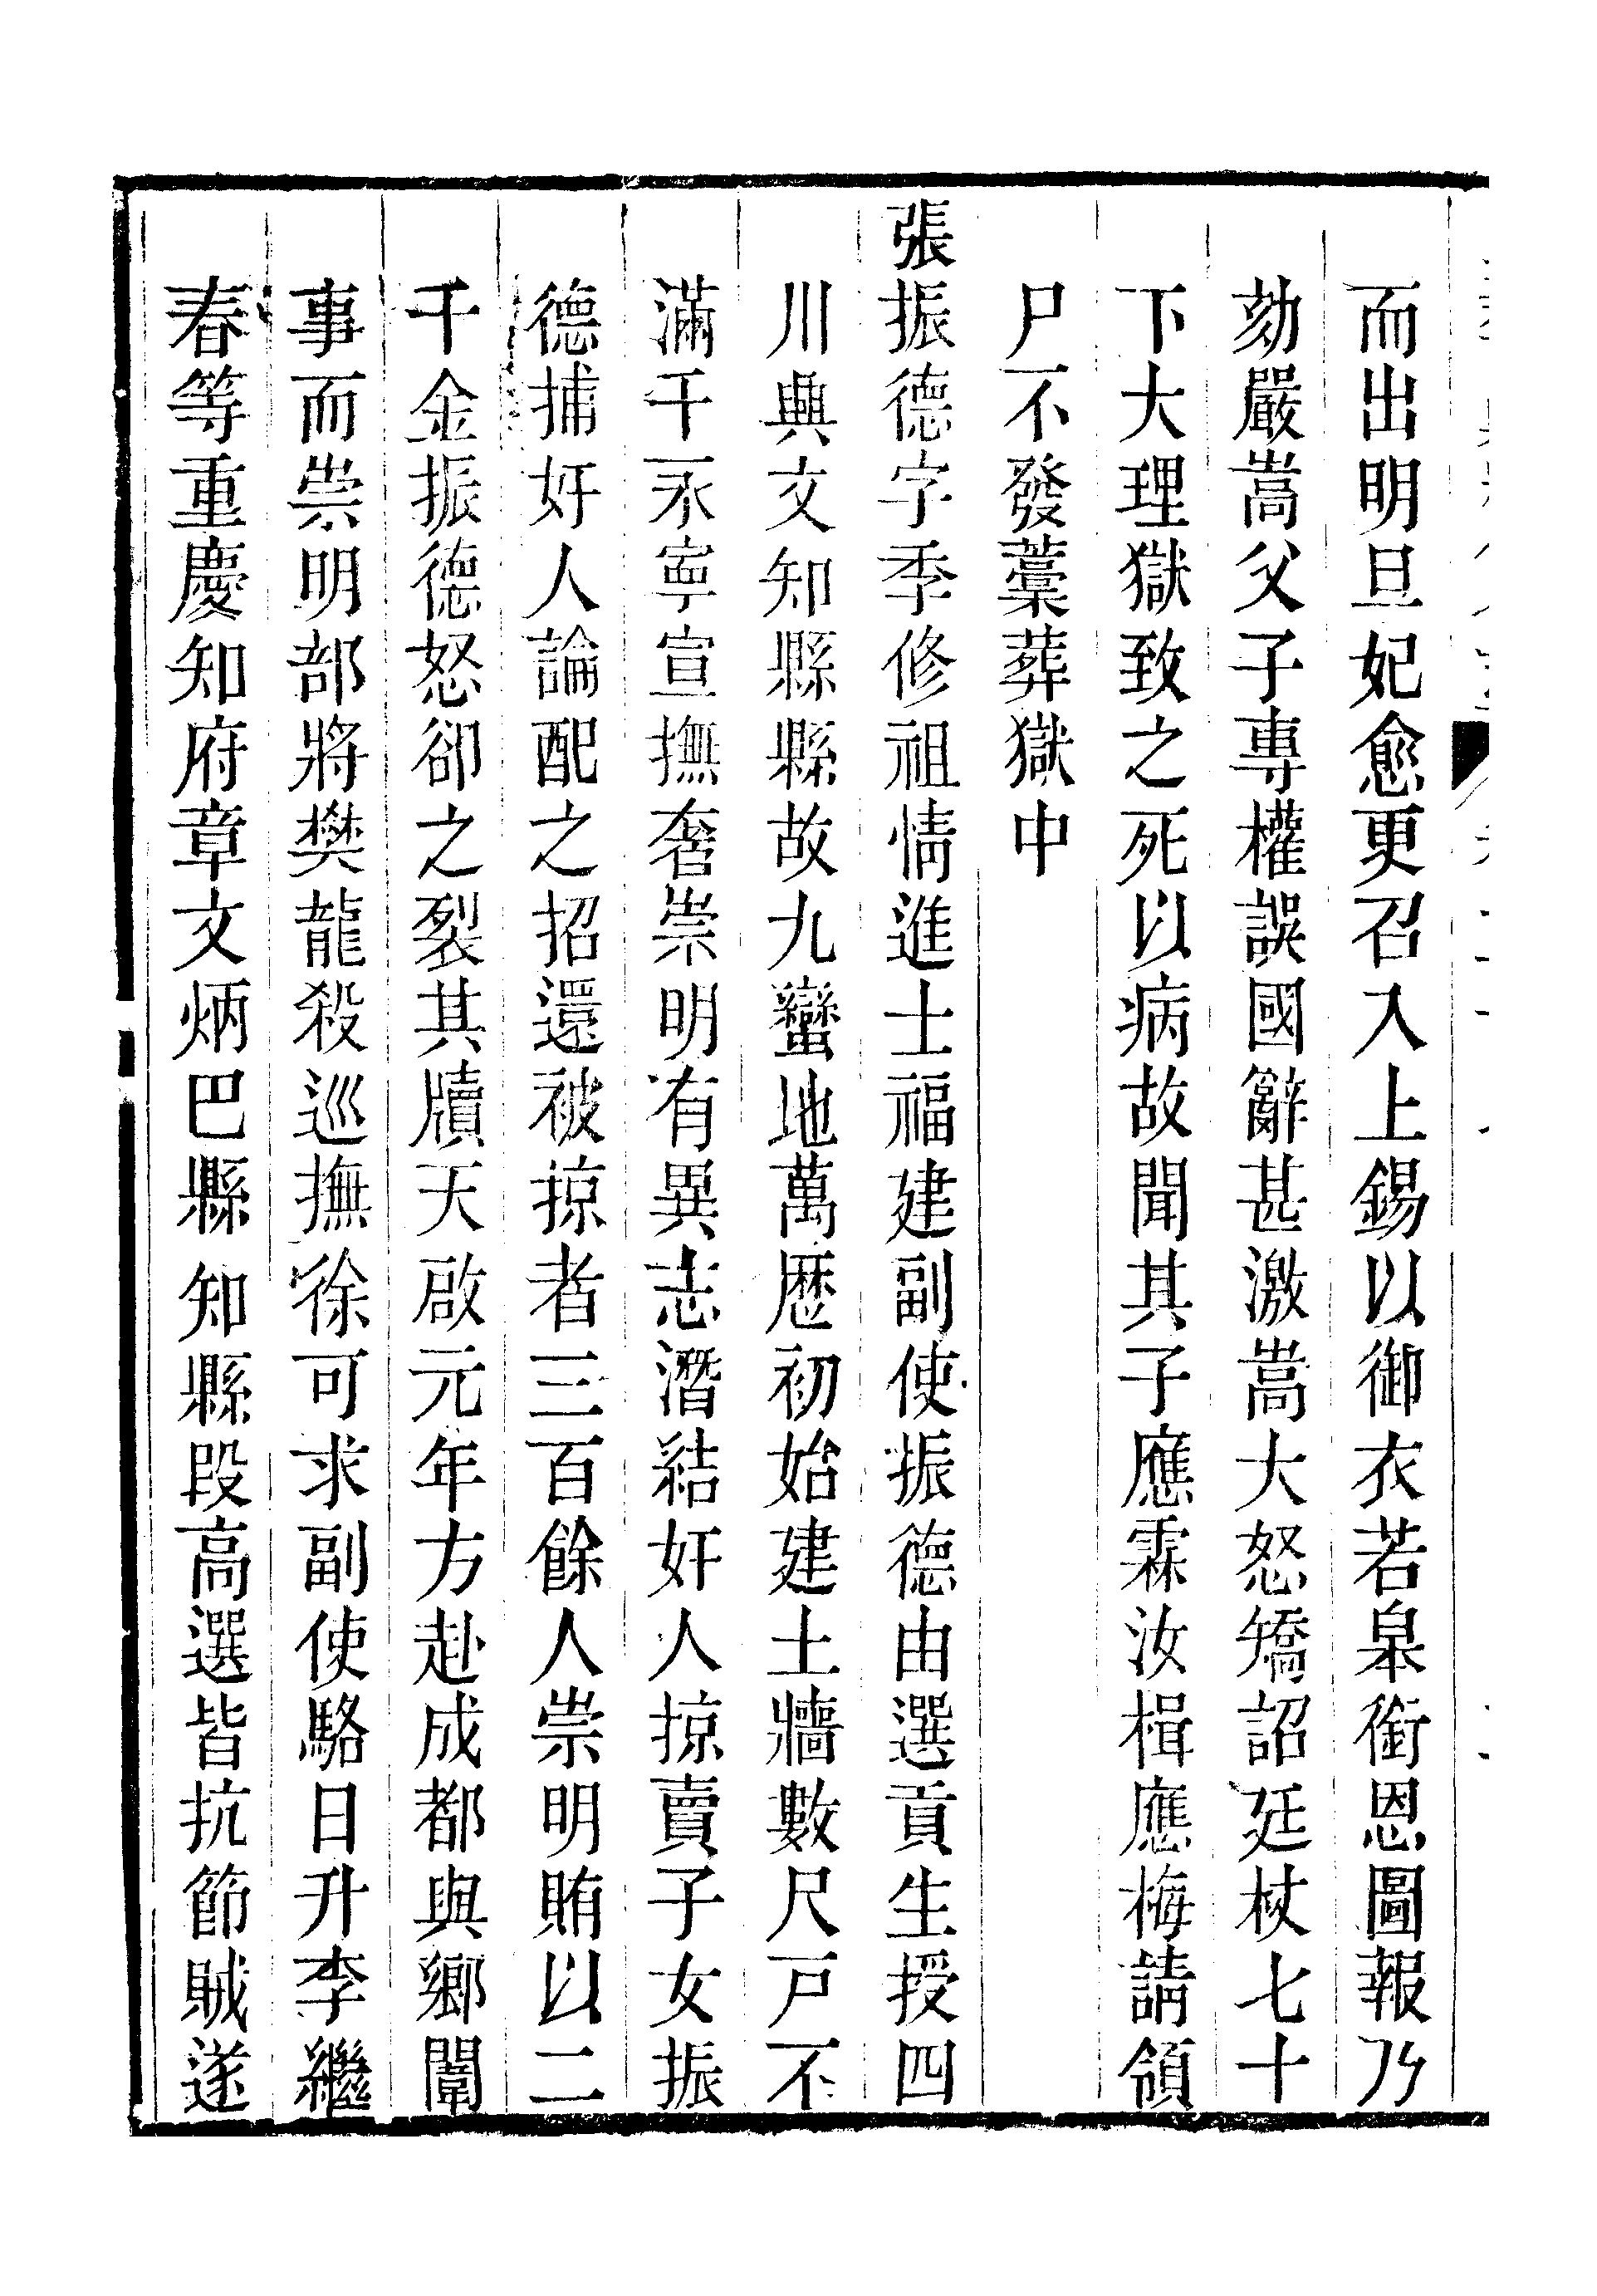 而出明旦妃愈更召入上錫以御衣若皋銜恩圖報乃
劾嚴嵩父子專權誤國辭甚激嵩大怒矯詔廷杖七十
下大理獄致之死以病故聞其子應霖汝楫應梅請領
尸不發藁葬獄中
張振德字季修祖情進士福建副使振德由選貢生授四
川興文知縣縣故九蠻地萬歷初始建土牆數尺戸不
滿千永寧宣撫奢崇明有異志潛結奸人掠賣子女振
德捕奸人論配之招還被掠者三百餘人崇明賄以二
千金振德怒卻之裂其牘天啟元年方赴成都與鄉闈
事而崇明部將樊龍殺巡撫徐可求副使駱日升李繼
春等重慶知府章文炳巴縣知縣段高選皆抗節賊遂